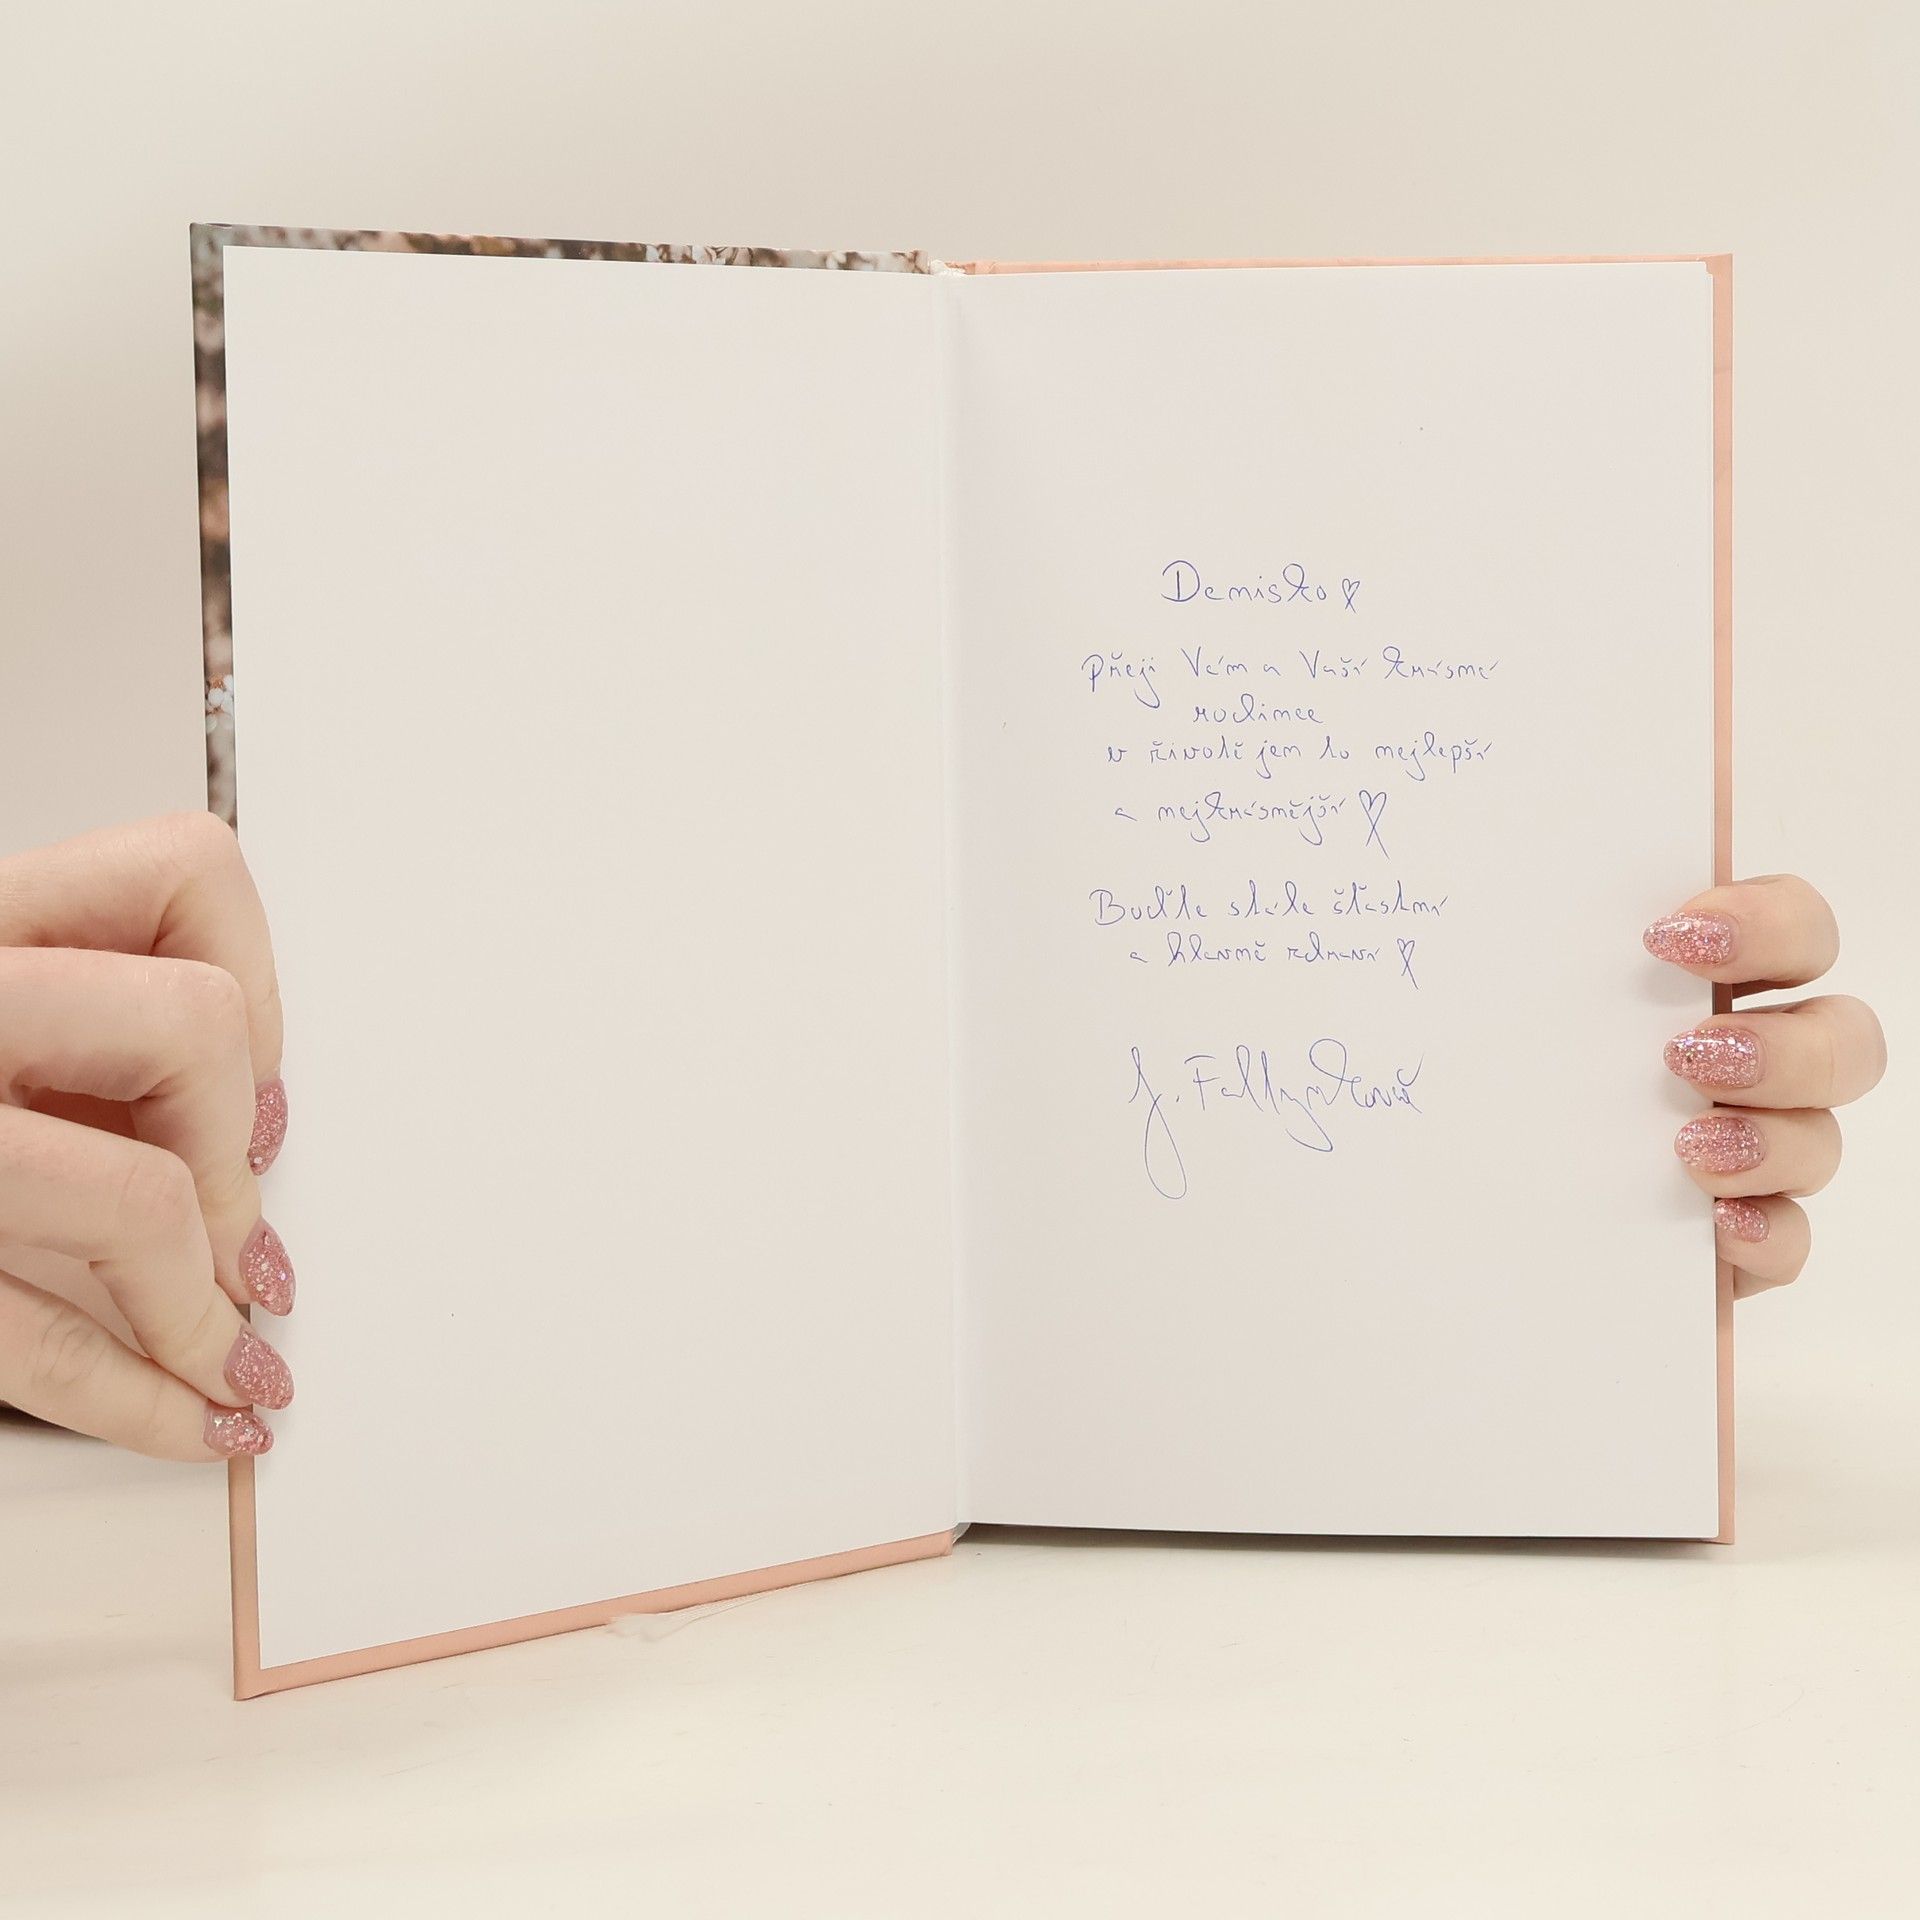 Denisko ♡
Přeji Vám a Vaší krásné
rodince
v životě jen to nejlepší
a nejkrásnější ♡
Buďte stále šťastní
a hlavně zdraví ♡
J. Faltýnková